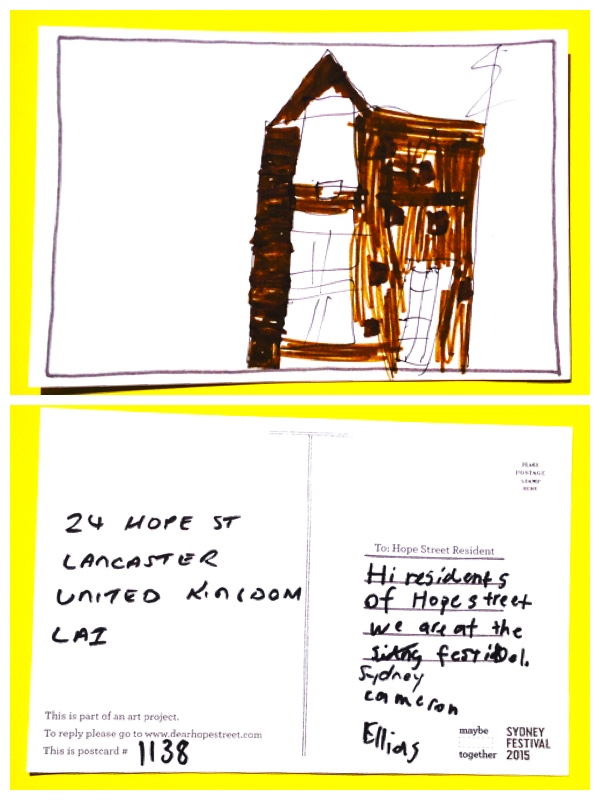 24 HOPE ST
LANCASTER
UNITED KINGDOM
LA1
This is part of an art project.
To reply please go to www.dearhopestreet.com
This is postcard # 1138
PLEASE
POSTAGE
STAMP
HERE
To: Hope Street Resident
Hi residents
of Hope street
we are at the
festival.
Sydney
cameron
Ellias
maybe
together
SYDNEY
FESTIVAL
2015